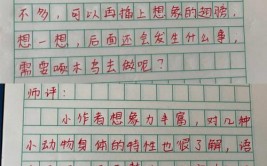 不多,可以再插上想象的翅膀,
想一想,后面还会发生什么事,
需要啄木鸟去做呢?
师评:
小作者想象力丰富,对几种
小动物身体的特性也很了解,语